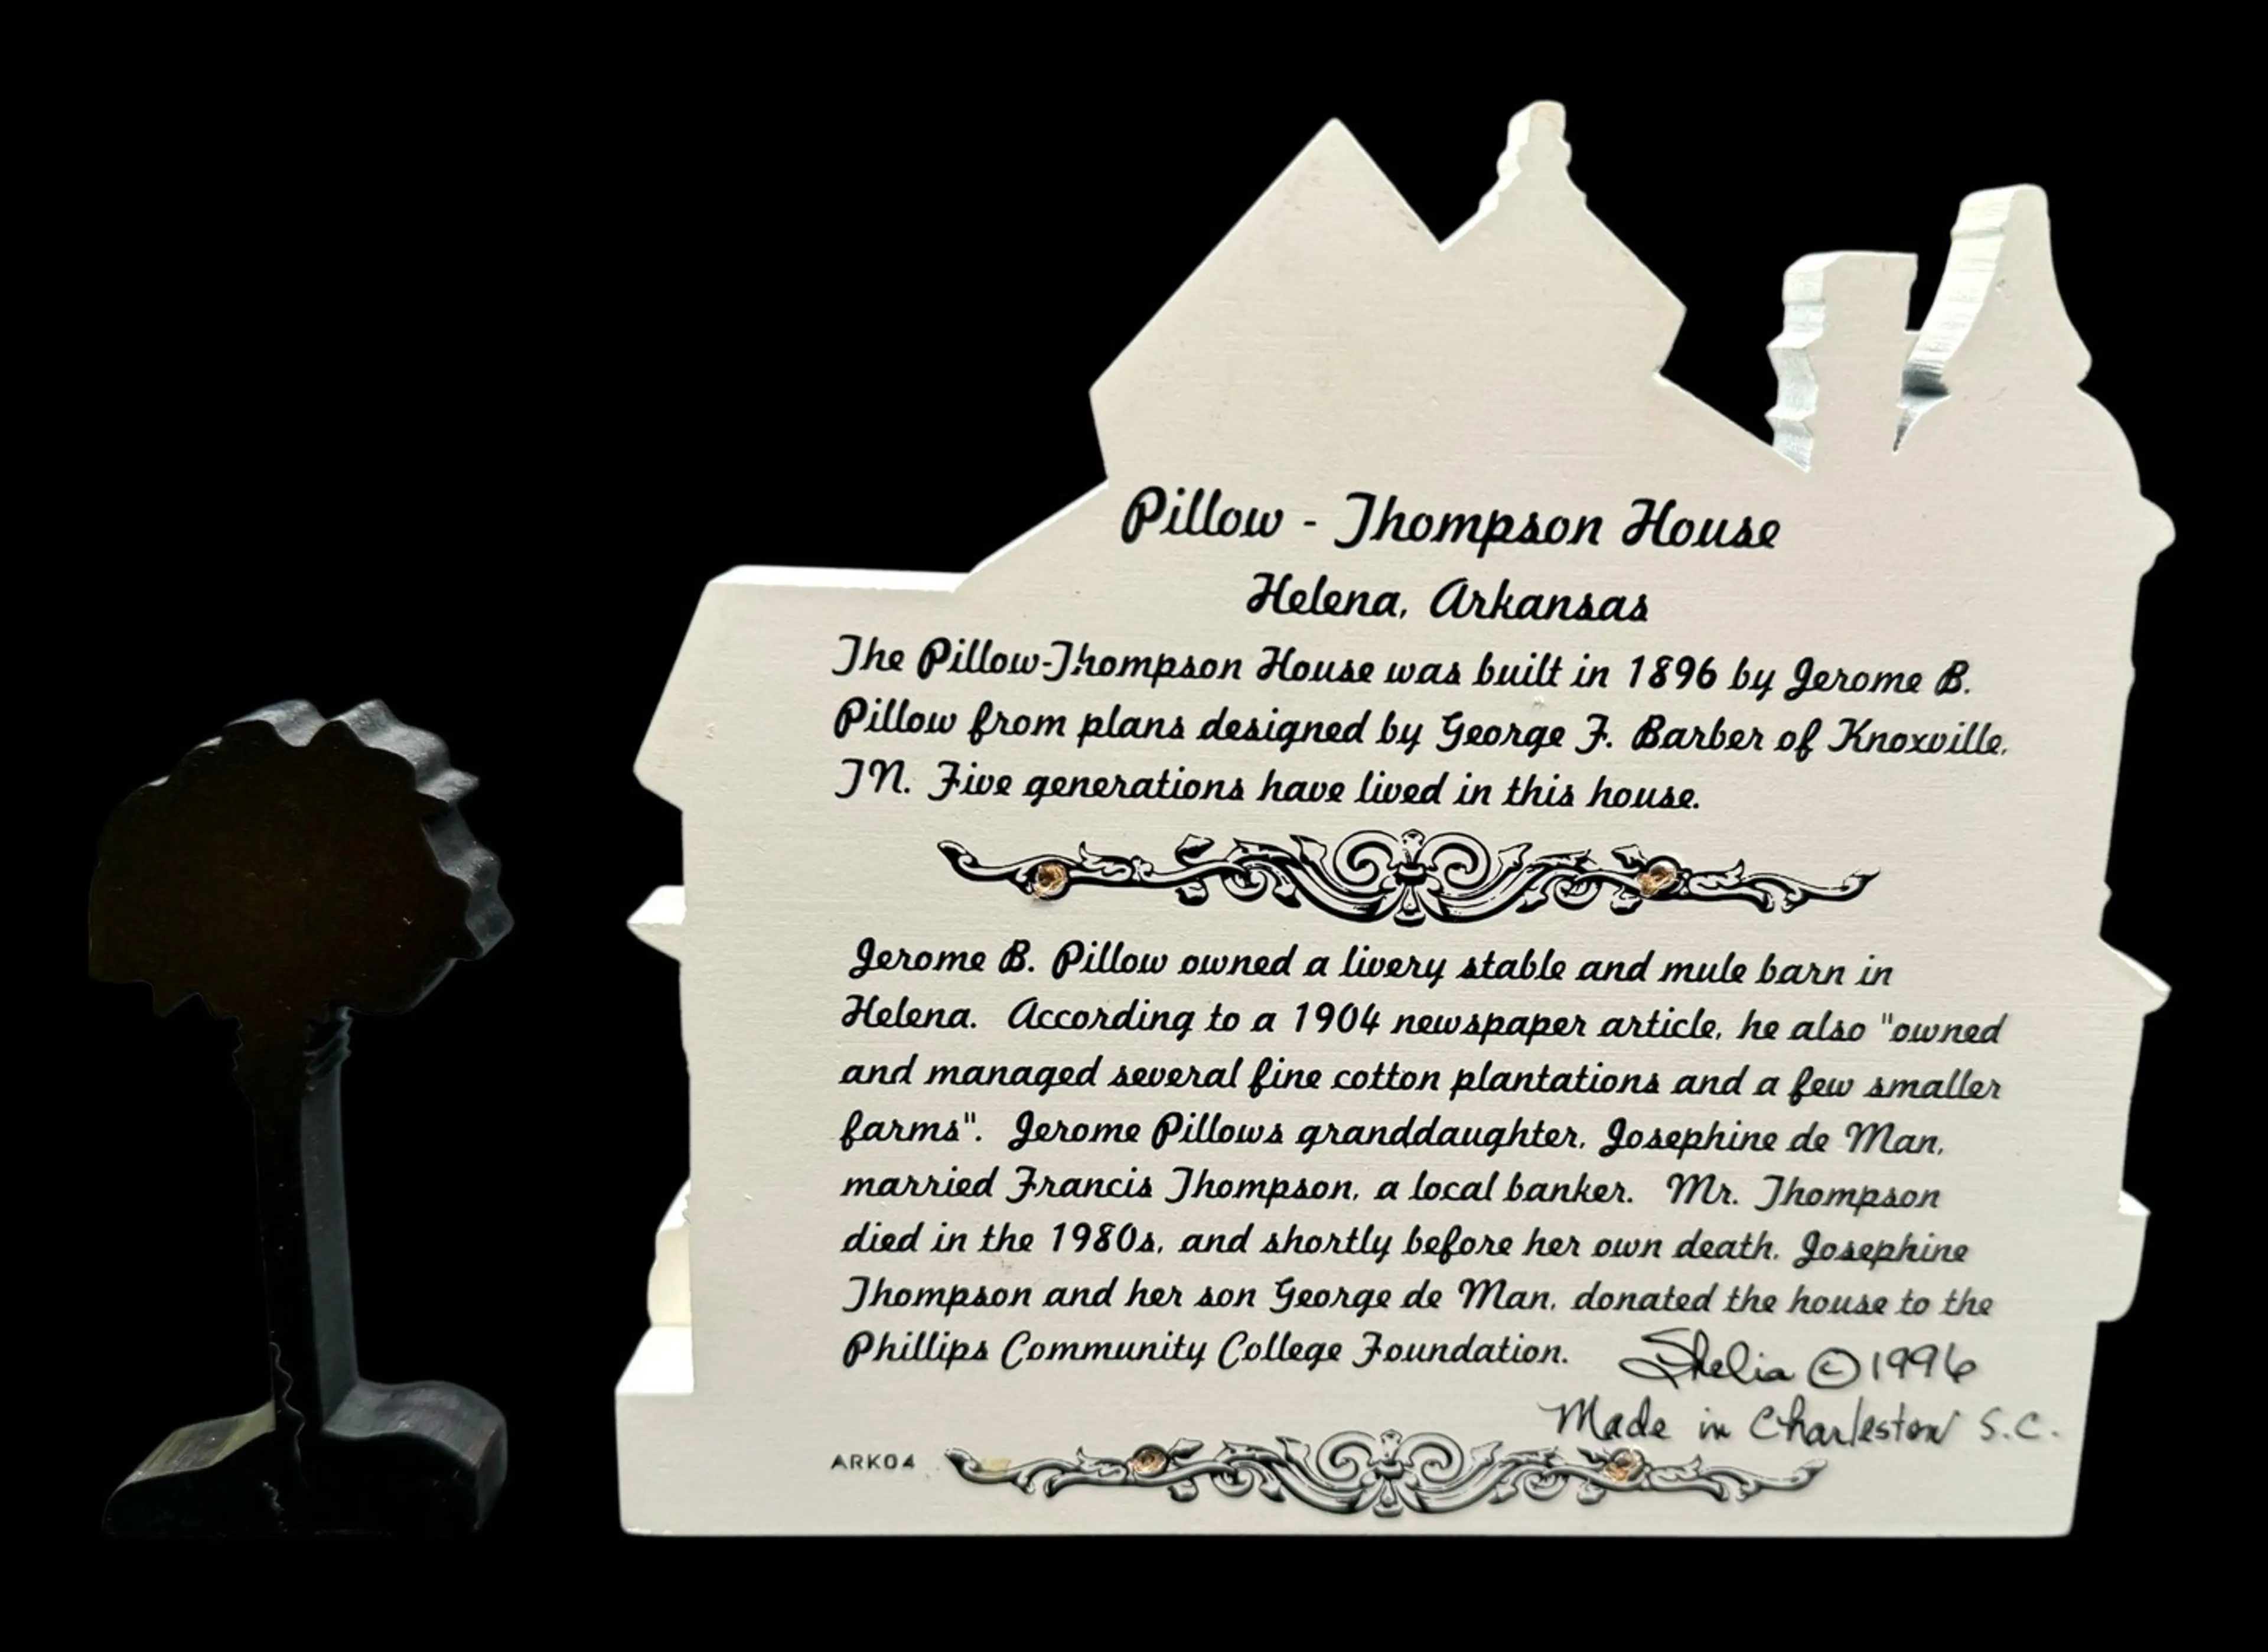 Pillow - Thompson House
Helena, Arkansas
The Pillow-Thompson House was built in 1896 by Jerome B.
Pillow from plans designed by George F. Barber of Knoxville,
TN. Five generations have lived in this house.
Jerome B. Pillow owned a livery stable and mule barn in
Helena. According to a 1904 newspaper article, he also "owned
and managed several fine cotton plantations and a few smaller
farms". Jerome Pillows granddaughter, Josephine de Man,
married Francis Thompson, a local banker. Mr. Thompson
died in the 1980s, and shortly before her own death, Josephine
Thompson and her son George de Man, donated the house to the
Phillips Community College Foundation.
Shelia © 1996
Made in Charleston S.C.
ARK04